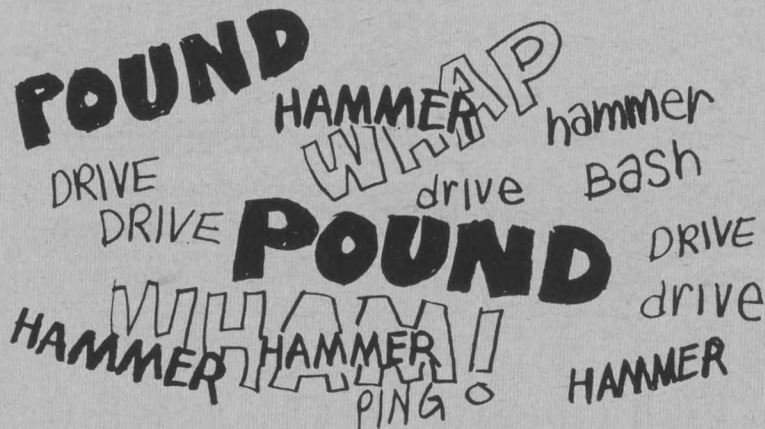 POUND
HAMMER
WHAP
hammer
DRIVE
drive
Bash
DRIVE
POUND
DRIVE
drive
WHAM!
HAMMER
HAMMER
HAMMER
PING